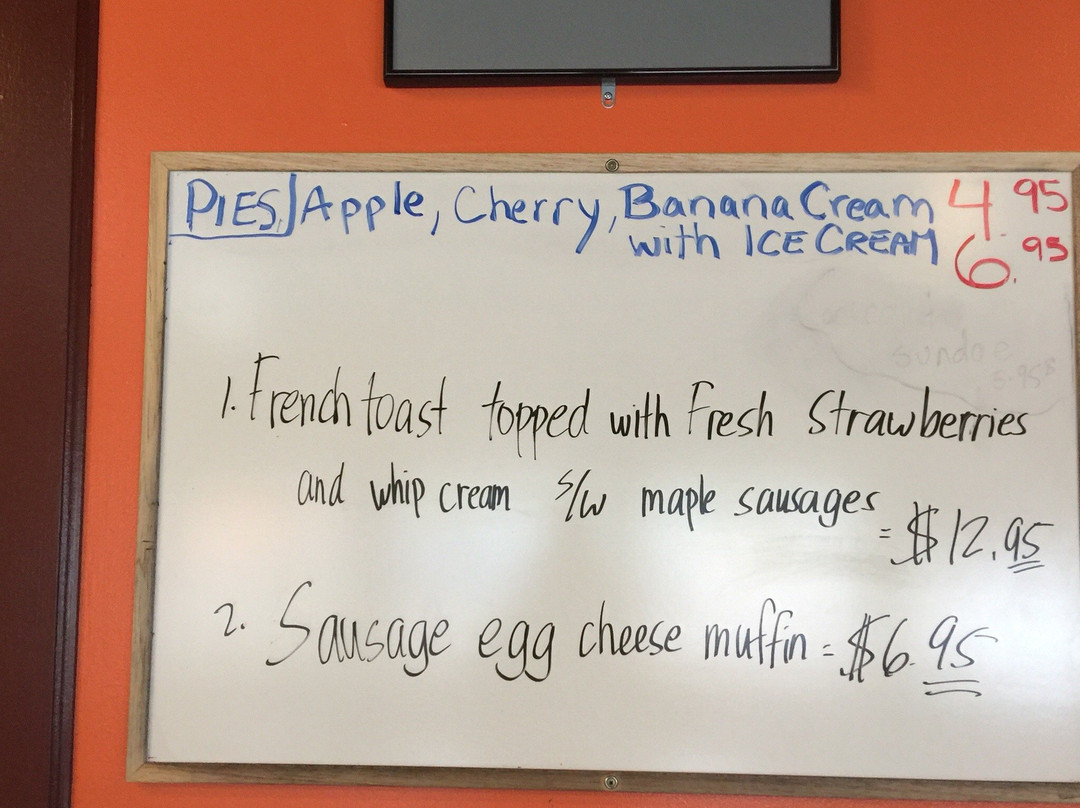 PIES Apple, Cherry, Banana Cream 4.95
with ICE CREAM 6.95
sundae
5.95
1. French toast topped with Fresh Strawberries
and whip cream s/w maple sausages
= $12.95
2. Sausage egg cheese muffin = $6.95